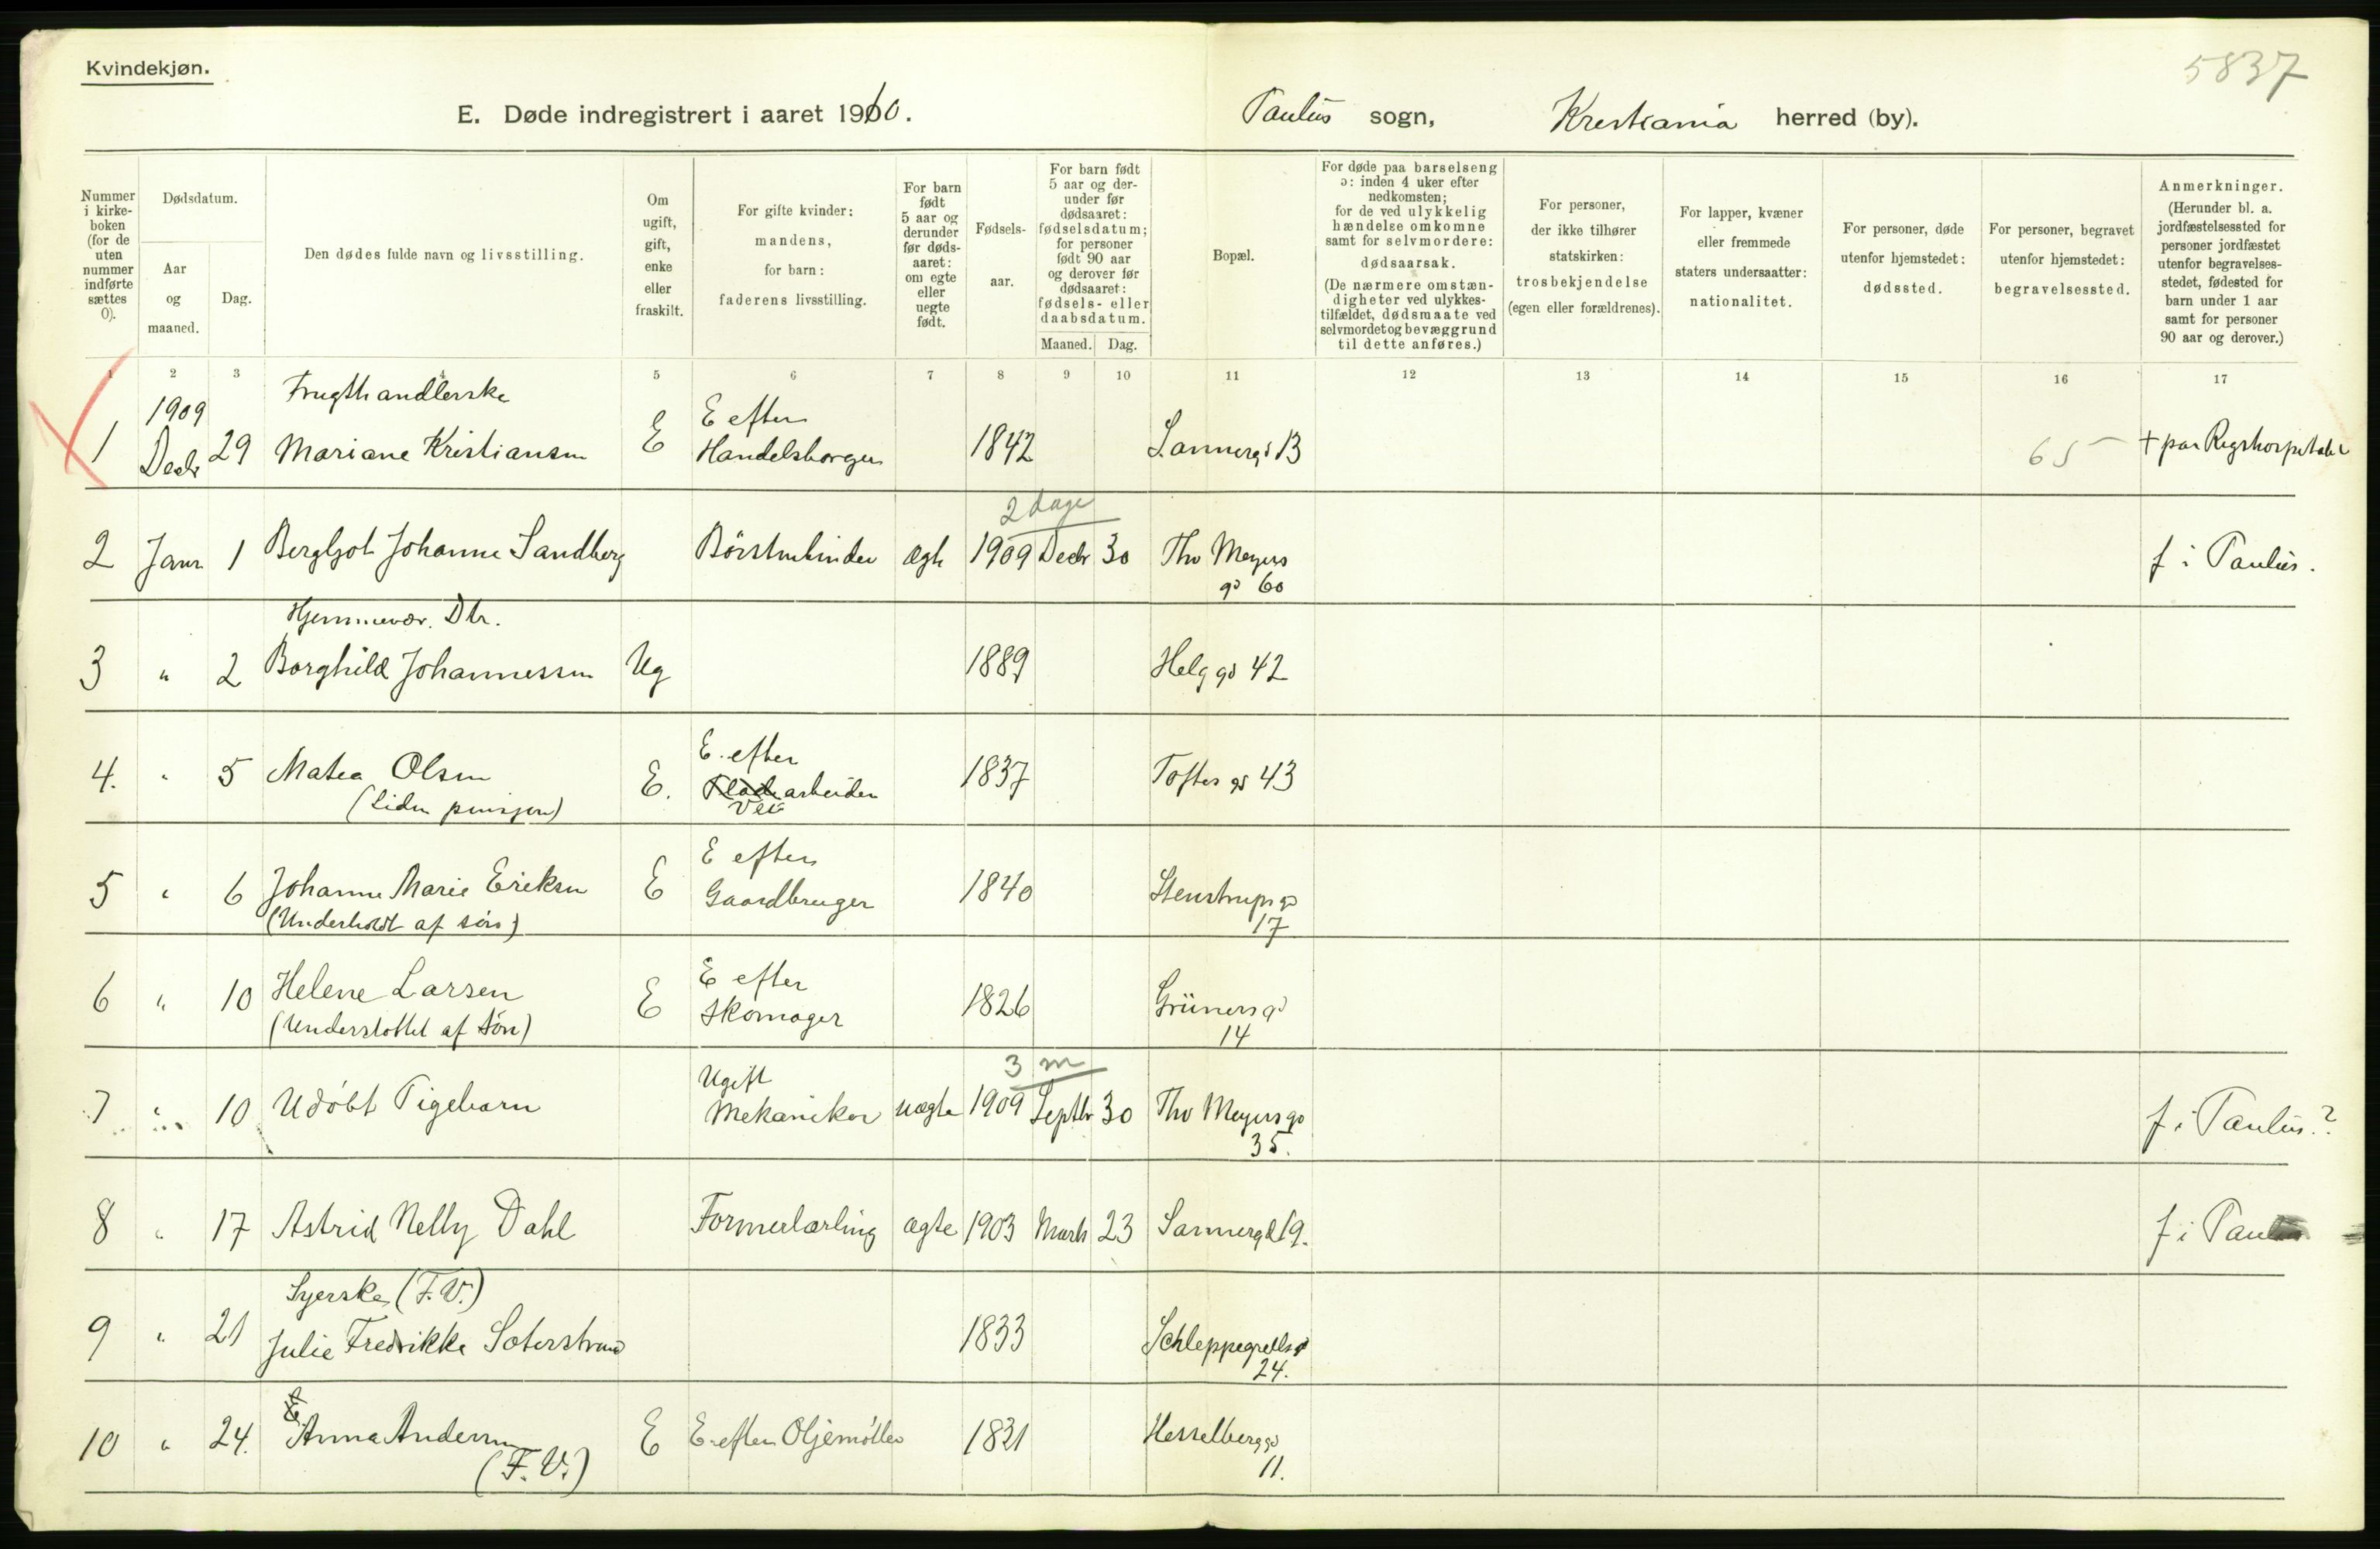 Kvindekjøn.
5837
E. Døde indregistrert i aaret 1910.
Paulus sogn, Kristiania herred (by).
Nummer i kirkeboken (for de uten nummer indførte sættes 0).
Dødsdatum.
Aar og maaned.
Dag.
Den dødes fulde navn og livsstilling.
Om ugift, gift, enke eller fraskilt.
For gifte kvinder: mandens, for barn: faderens livsstilling.
For barn født 5 aar og derunder før dødsaaret: om egte eller uegte født.
Fødselsaar.
For barn født 5 aar og derunder før dødsaaret: fødselsdatum; for personer født 90 aar og derover før dødsaaret: fødsels- eller daabsdatum.
Maaned. Dag.
Bopæl.
For døde paa barselseng ɔ: inden 4 uker efter nedkomsten; for de ved ulykkelig hændelse omkomne samt for selvmordere: dødsaarsak.
(De nærmere omstændigheter ved ulykkestilfældet, dødsmaate ved selvmordet og bevæggrund til dette anføres.)
For personer, der ikke tilhører statskirken: trosbekjendelse (egen eller forældrenes).
For lapper, kvæner eller fremmede staters undersaatter: nationalitet.
For personer, døde utenfor hjemstedet: dødssted.
For personer, begravet utenfor hjemstedet: begravelsessted.
Anmerkninger.
(Herunder bl. a. jordfæstelsessted for personer jordfæstet utenfor begravelsesstedet, fødested for barn under 1 aar samt for personer 90 aar og derover.)
1 2 3 4 5 6 7 8 9 10 11 12 13 14 15 16 17
Frugthandlerske
1909
1 Decbr 29 Mariane Kristiansen E E efter Handelsborger 1842 Sannergd 13 65 + paa Rigshospitalet
2 dage
2 Janr 1 Bergljot Johanne Sandberg Börstenbinder ægte 1909 Decbr 30 Thv Meyers gd 60 f i Paulus.
Hjemmevær. Dtr.
3 " 2 Borghild Johannessen Ug 1889 Helg gd 42
4. " 5 Matea Olsen E. E. efter arbeider 1837 Toftes gd 43
(Liden pensjon) Vei
5 " 6 Johanne Marie Eriksen E E efter Gaardbruger 1840 Stenstrups gd 17
(Underholdt af søn)
6 " 10 Helene Larsen E E efter Skomager 1826 Grüners gd 14
(Understøttet af søn)
3 m
7 " 10 Udöbt Pigebarn Ugift Mekaniker uægte 1909 Septbr 30 Thv Meyers gd 35. f i Paulus.?
8 " 17 Astrid Nelly Dahl Formerlærling ægte 1903 Marts 23 Sannergd 19. f i Paulus
Syerske (F.V.)
9 " 21 Julie Fredrikke Soterstrand 1833 Schleppegrells gd 24.
10 " 24. Anna Andersen E E. efter Oljemöller 1821 Hesselberg gd 11.
(F. V.)